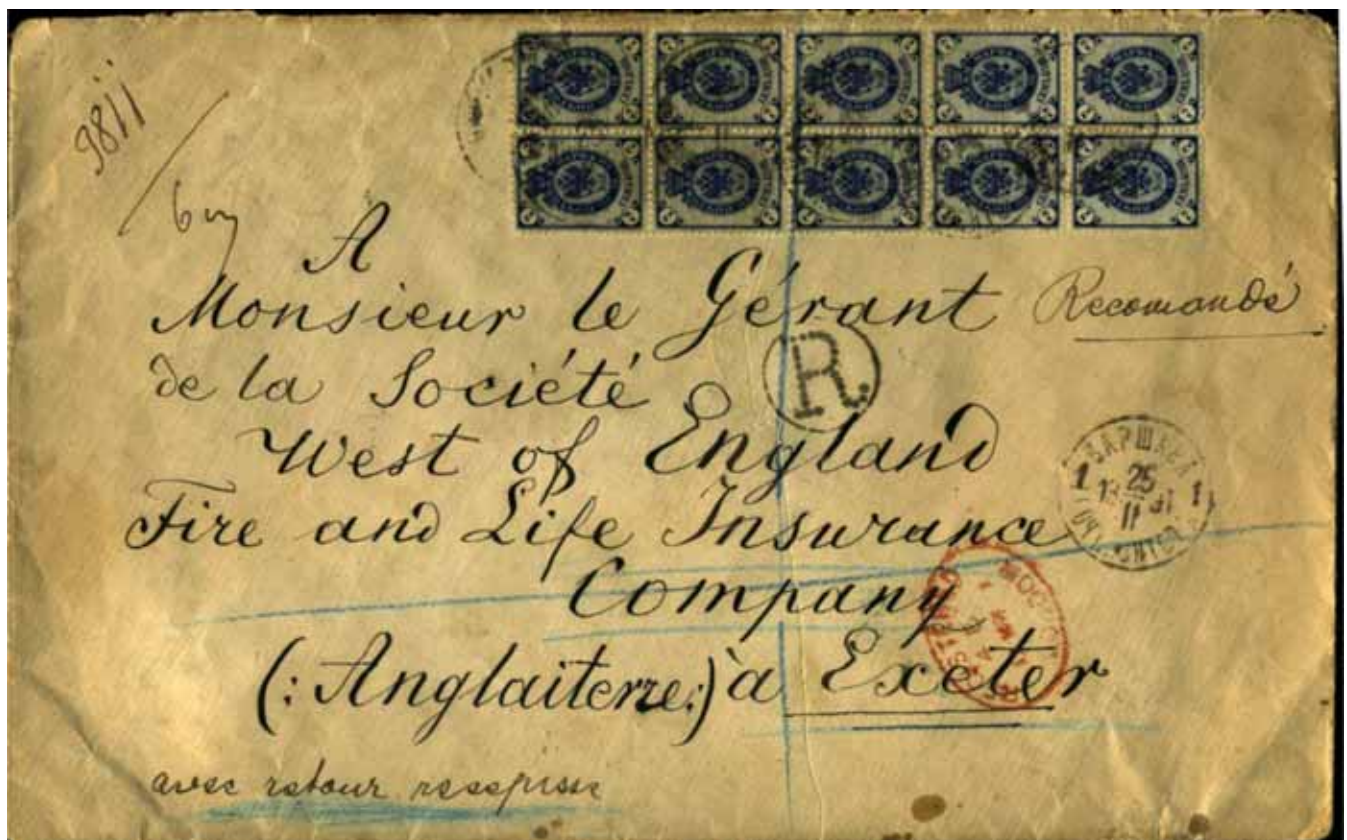 9811
A
Monsieur le Gérant
Recomandé
de la Société
R
West of England
Fire and Life Insurance
Company
(: Anglaiterre :) à Exeter
avec retour
ВАРШАВА
1 25 1
11